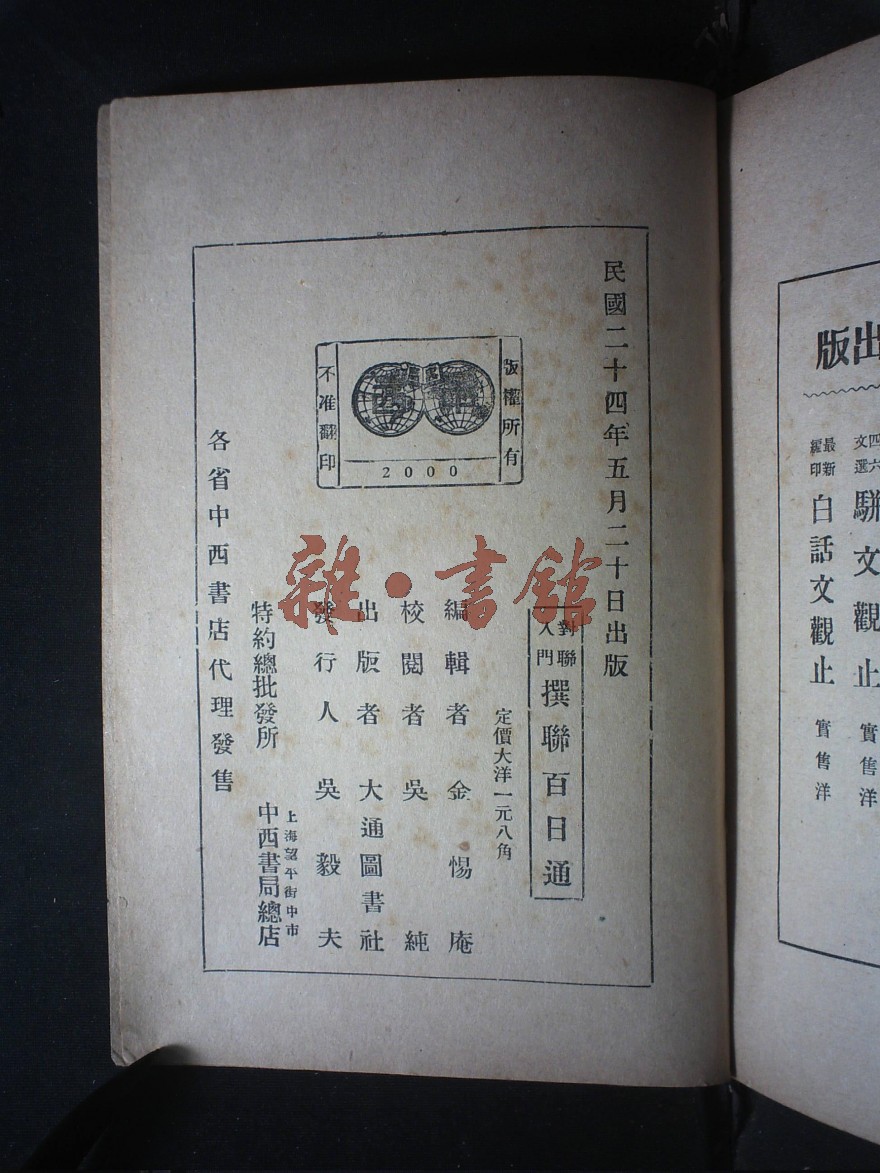 民國二十四年五月二十日出版
對聯入門
撰聯百日通
定價大洋一元八角
編輯者 金惕庵
校閱者 吳純
出版者 大通圖書社
發行人 吳毅夫
特約總批發所
上海望平街中市
中西書局總店
各省中西書店代理發售
版權所有
2000
不准翻印
雜·書館
出版
四六文選
駢文觀止
實售洋
最新編印
白話文觀止
實售洋